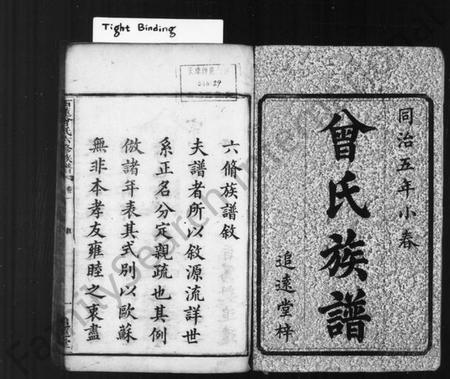 Tight Binding
同治五年小春
曾氏族譜
追遠堂梓
六脩族譜敘
夫譜者所以敘源流詳世
系正名分定親疏也其例
倣諸年表其式別以歐蘇
無非本孝友雍睦之衷盡
FamilySearch International